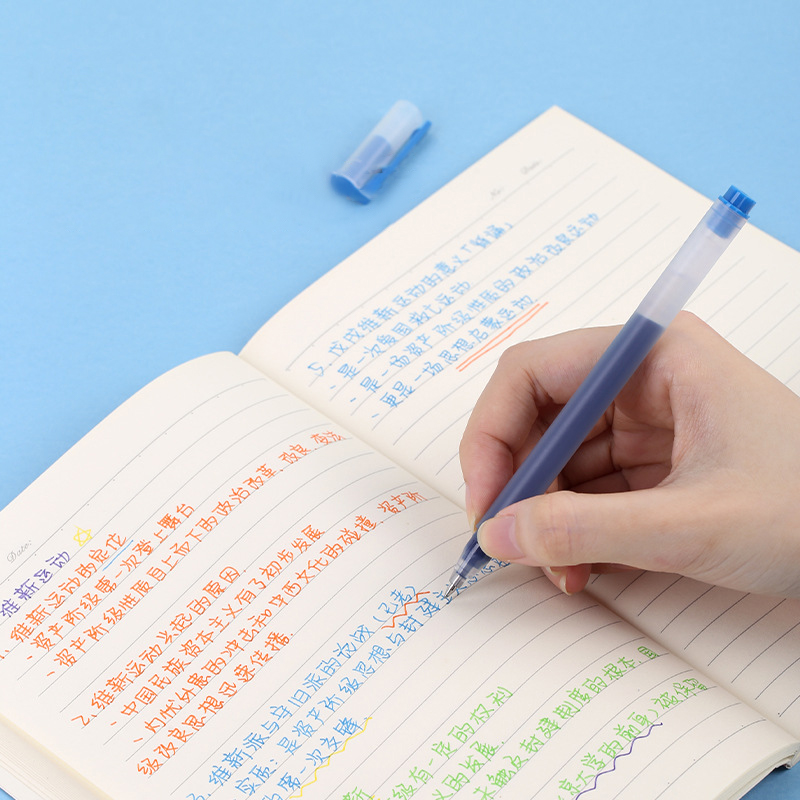 Date:
维新运动
1. 维新运动的定位
、资产阶级第一次登上舞台
、资产阶级性质自上而下的政治改革 改良 变法
2. 维新运动兴起的原因
、中国民族资本主义有了初步发展
、内忧外患的冲击和中西文化的碰撞 资产阶
级改良思想迅速传播.
3. 维新派与守旧派的论战(记者)
实质: 是资产阶级思想与封建
的第一次交锋
级有一定的权利
义的发展.
未触及封建制度的根本
京大学的前身, 被保留
No: Date:
5. 戊戌维新运动的意义「
、是一次爱国救亡运动
、是一场资产阶级性质的政治改良运动
、更是一场思想启蒙运动